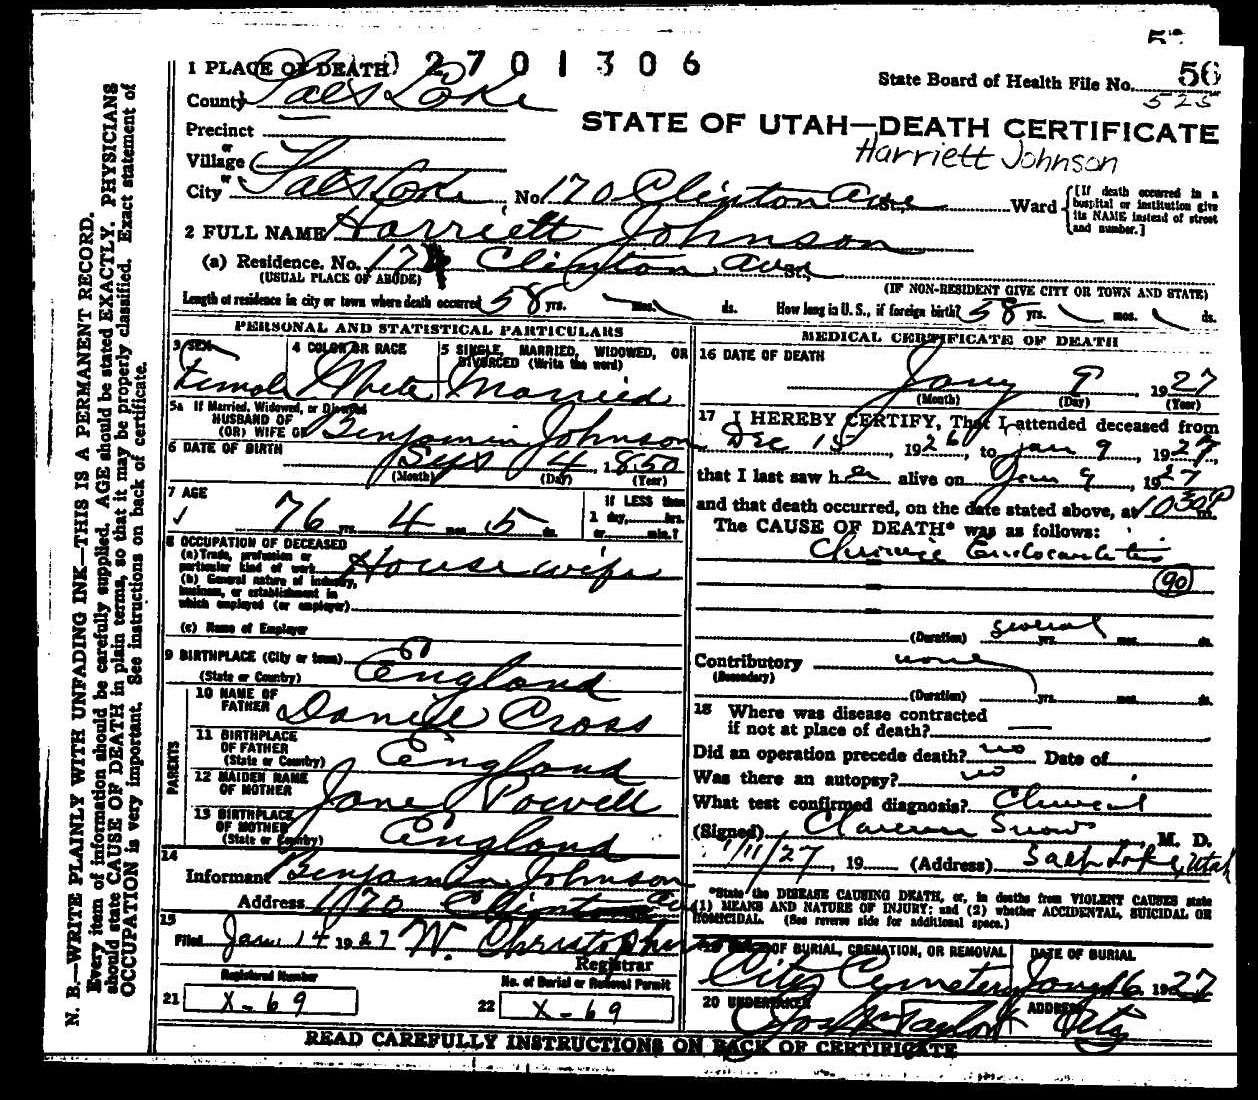 2701306
1 PLACE OF DEATH
State Board of Health File No. 56
525
County Salt Lake
STATE OF UTAH—DEATH CERTIFICATE
Harriett Johnson
Precinct
or
Village
or
City Salt Lake, No. 170 Clinton Ave St., Ward
[If death occurred in a
hospital or institution give
its NAME instead of street
and number.]
2 FULL NAME Harriett Johnson
(a) Residence. No. 170 Clinton Ave St.,
(USUAL PLACE OF ABODE) (IF NON-RESIDENT GIVE CITY OR TOWN AND STATE)
Length of residence in city or town where death occurred 58 yrs. mos. ds. How long in U. S., if foreign birth? 58 yrs. mos. ds.
PERSONAL AND STATISTICAL PARTICULARS
3 SEX
Female
4 COLOR OR RACE
White
5 SINGLE, MARRIED, WIDOWED, OR
DIVORCED (Write the word)
Married
5a If Married, Widowed, or Divorced
HUSBAND OF
(OR) WIFE OF Benjamin Johnson
6 DATE OF BIRTH
Sep 4, 1850
(Month) (Day) (Year)
7 AGE
76 yrs. 4 mos. 5 ds.
If LESS than
1 day, hrs.
or min.?
8 OCCUPATION OF DECEASED
(a) Trade, profession or
particular kind of work Housewife
(b) General nature of industry,
business, or establishment in
which employed (or employer)
(c) Name of Employer
9 BIRTHPLACE (City or town)
(State or Country) England
60
PARENTS
10 NAME OF
FATHER Daniel Cross
11 BIRTHPLACE
OF FATHER
(State or Country) England
12 MAIDEN NAME
OF MOTHER Jane Powell
13 BIRTHPLACE
OF MOTHER
(State or Country) England
14
Informant Benjamin Johnson
Address 170 Clinton Ave
15
Filed Jan 14 1927 W. Christopherson
Registrar
Registered Number
21 X-69
No. of Burial or Removal Permit
22 X-69
MEDICAL CERTIFICATE OF DEATH
16 DATE OF DEATH
Jany 9 1927
(Month) (Day) (Year)
17 I HEREBY CERTIFY, That I attended deceased from
Dec 15, 1926, to Jan 9, 1927,
that I last saw her alive on Jan 9, 1927
and that death occurred, on the date stated above, at 10:30 P m.
The CAUSE OF DEATH* was as follows:
Chronic Endocarditis
90
(Duration) several yrs. mos. ds.
Contributory none
(Secondary)
(Duration) yrs. mos. ds.
18 Where was disease contracted
if not at place of death?
Did an operation precede death? no Date of
Was there an autopsy? no
What test confirmed diagnosis? Clinical
(Signed) Clarence Snow, M. D.
1/11/27, 19 (Address) Salt Lake, Utah
*State the DISEASE CAUSING DEATH, or, in deaths from VIOLENT CAUSES state
(1) MEANS AND NATURE OF INJURY; and (2) whether ACCIDENTAL, SUICIDAL OR
HOMICIDAL. (See reverse side for additional space.)
OF BURIAL, CREMATION, OR REMOVAL
City Cemetery
DATE OF BURIAL
Jany 16 1927
20 UNDERTAKER
Jos Wm Taylor
ADDRESS
City
READ CAREFULLY INSTRUCTIONS ON BACK OF CERTIFICATE
N. B.—WRITE PLAINLY WITH UNFADING INK—THIS IS A PERMANENT RECORD.
Every item of information should be carefully supplied. AGE should be stated EXACTLY. PHYSICIANS
should state CAUSE OF DEATH in plain terms, so that it may be properly classified. Exact statement of
OCCUPATION is very important. See instructions on back of certificate.